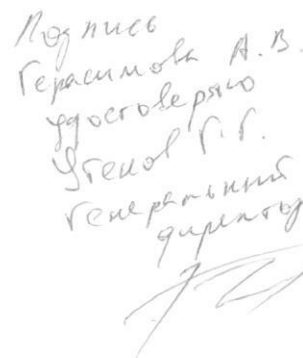 Подпись
Герасимова А.В.
удостоверяю
Утенов Г.Г.
генеральный
директор